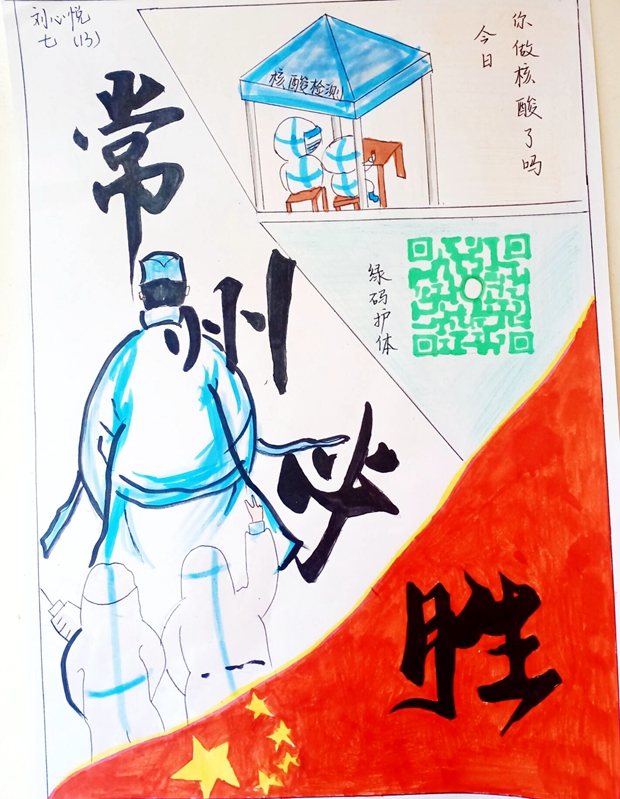 刘心悦
七（13）
常州必胜
核酸检测
今日
你做核酸了吗
绿码护体